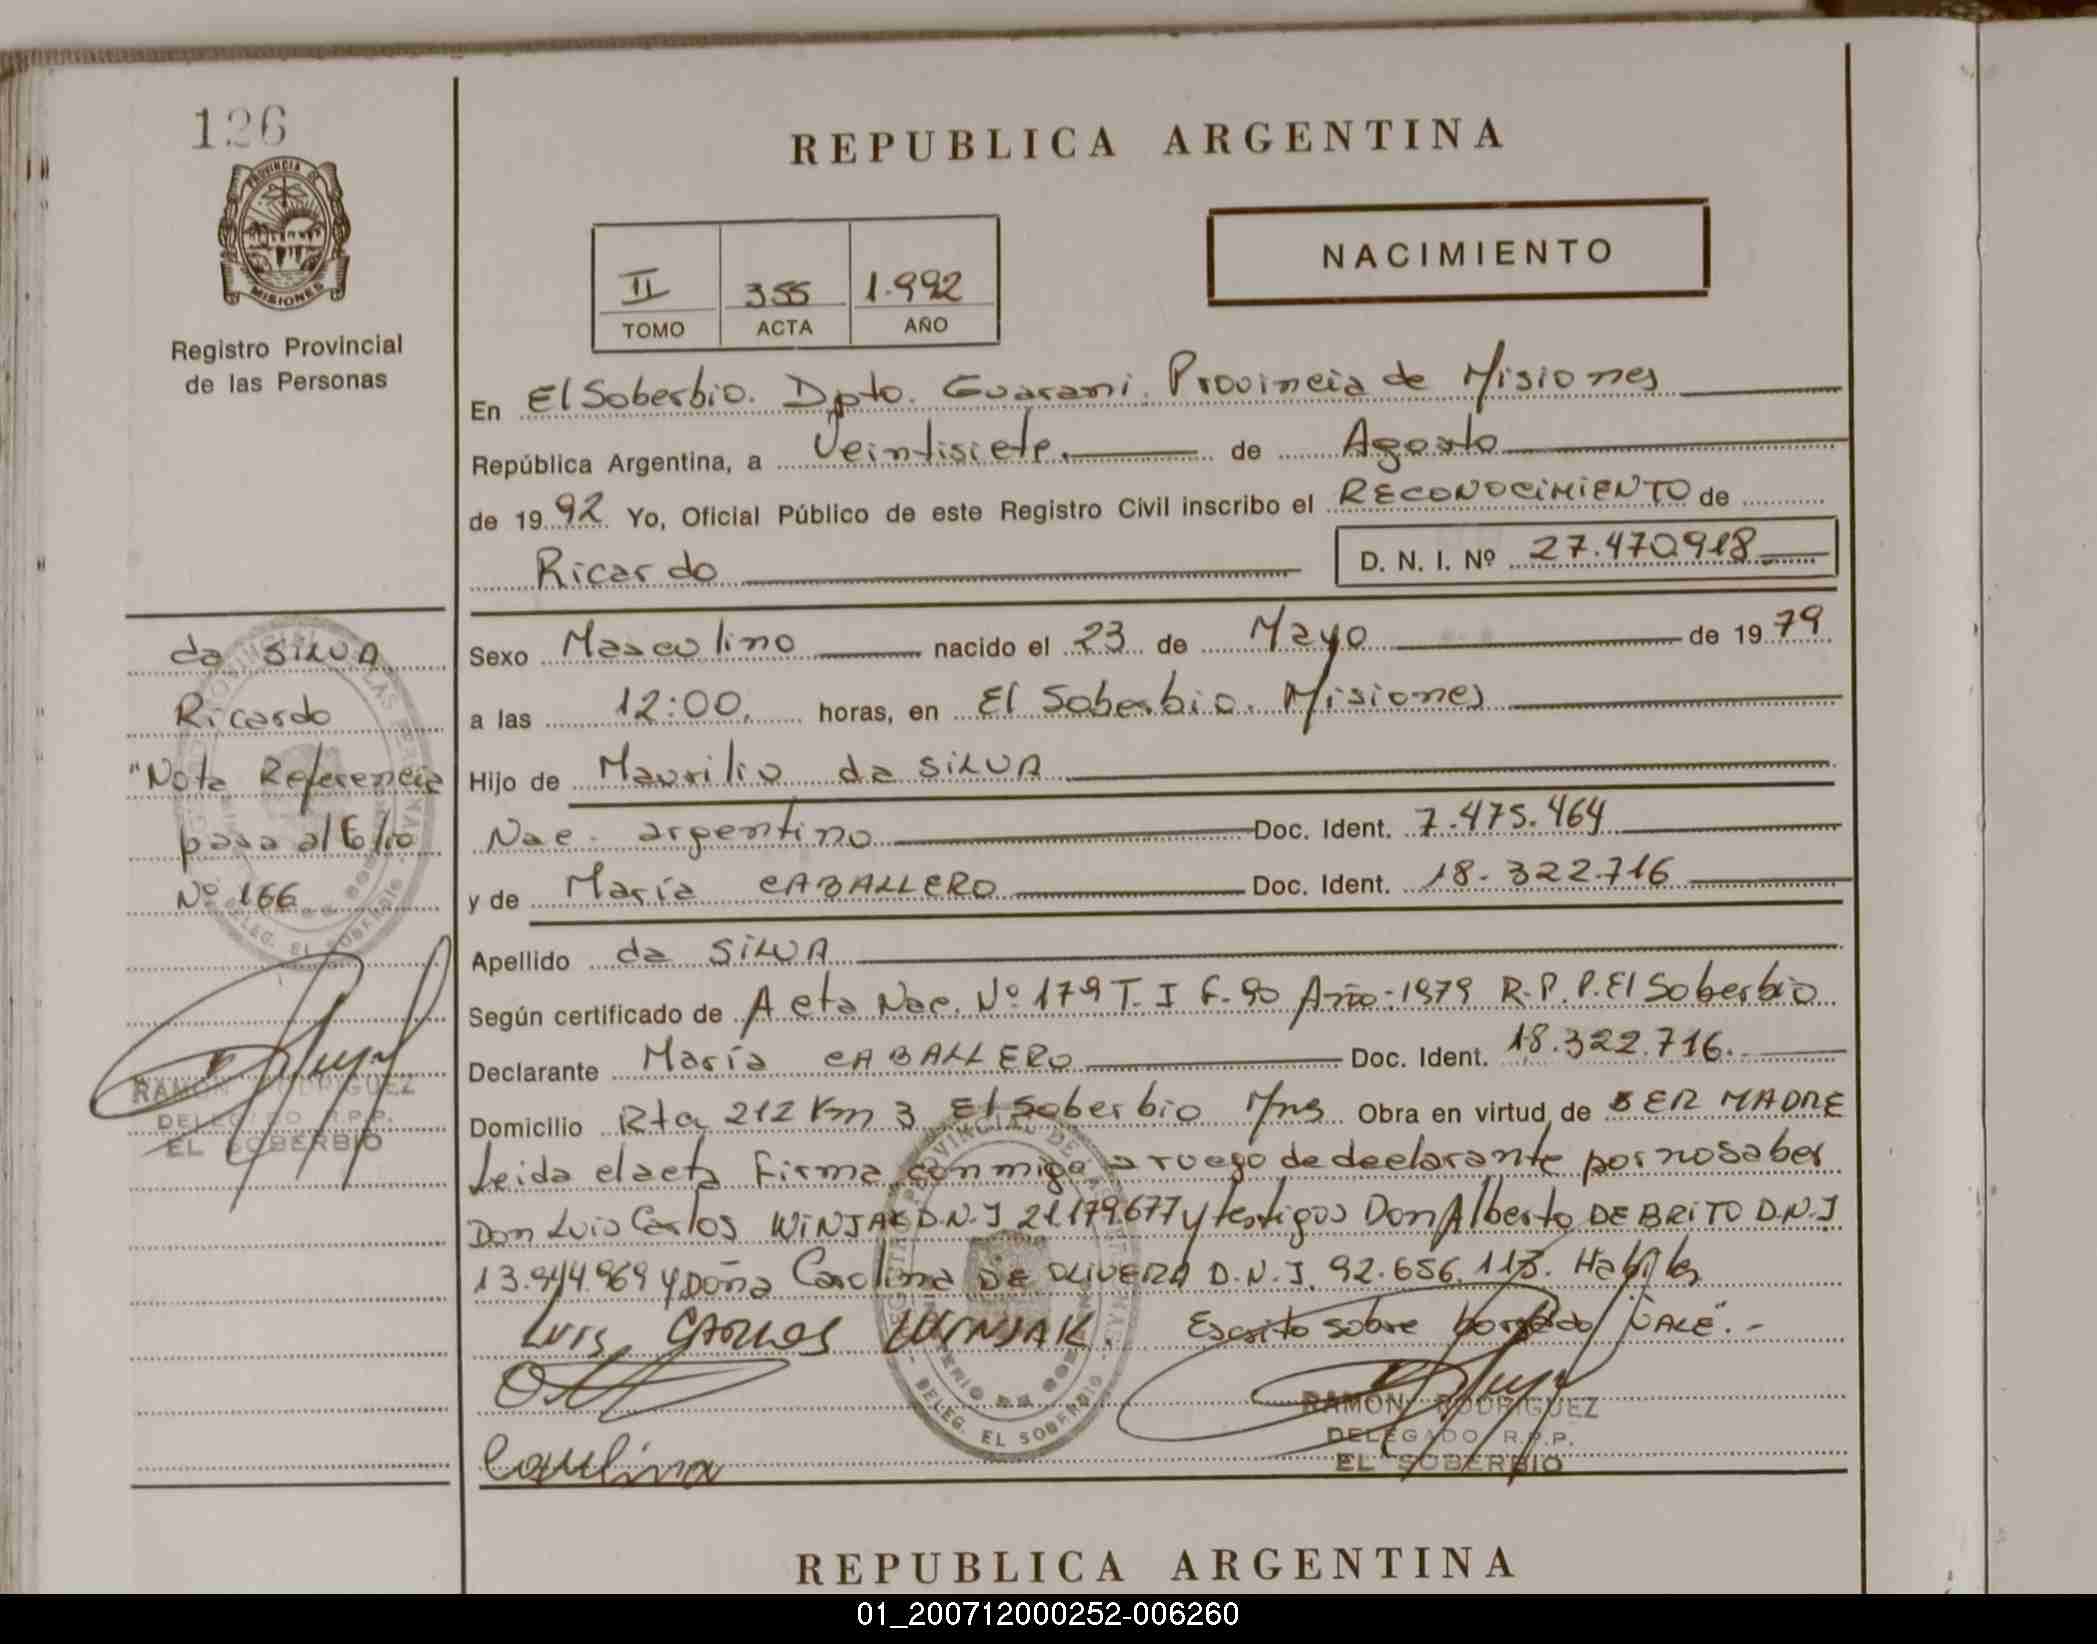 126
PROVINCIA DE
MISIONES
Registro Provincial
de las Personas
REPUBLICA ARGENTINA
II 355 1.992
TOMO ACTA AÑO
NACIMIENTO
En El Soberbio. Dpto. Guarani. Provincia de Misiones
República Argentina, a Veintisiete. de Agosto
de 1992 Yo, Oficial Público de este Registro Civil inscribo el RECONOCIMIENTO de
Ricardo D. N. I. Nº 27.470.918
Sexo Masculino nacido el 23 de Mayo de 1979
a las 12:00. horas, en El Soberbio. Misiones
Hijo de Maurilio da SILVA
Nac. argentino Doc. Ident. 7.475.464
y de María CABALLERO Doc. Ident. 18.322.716
Apellido da SILVA
Según certificado de Acta Nac. Nº 179 T. I F. 90 Año: 1979 R.P.P. El Soberbio
Declarante María CABALLERO Doc. Ident. 18.322.716.
Domicilio Rta 212 Km 3 El Soberbio Mns Obra en virtud de SER MADRE
Leida el acta Firma conmigo a ruego de declarante por no saber
Don Luis Carlos WINJAK D.N.I 21.179.677 y testigos Don Alberto DE BRITO D.N.I
13.944.969 y Doña Carolina DE OLIVERA D.N.I. 92.656.113. Habiles
LUIS CARLOS WINJAK. Escrito sobre borrado "VALE".-
RAMON RODRIGUEZ
DELEGADO R.P.P.
EL SOBERBIO
Carolina
DELEG. EL SOBERBIO
da SILVA
Ricardo
"Nota Referencia
pasa al Folio
Nº 166
DELEG. EL SOBERBIO
RAMON RODRIGUEZ
DELEGADO R.P.P.
EL SOBERBIO
REPUBLICA ARGENTINA
01_200712000252-006260